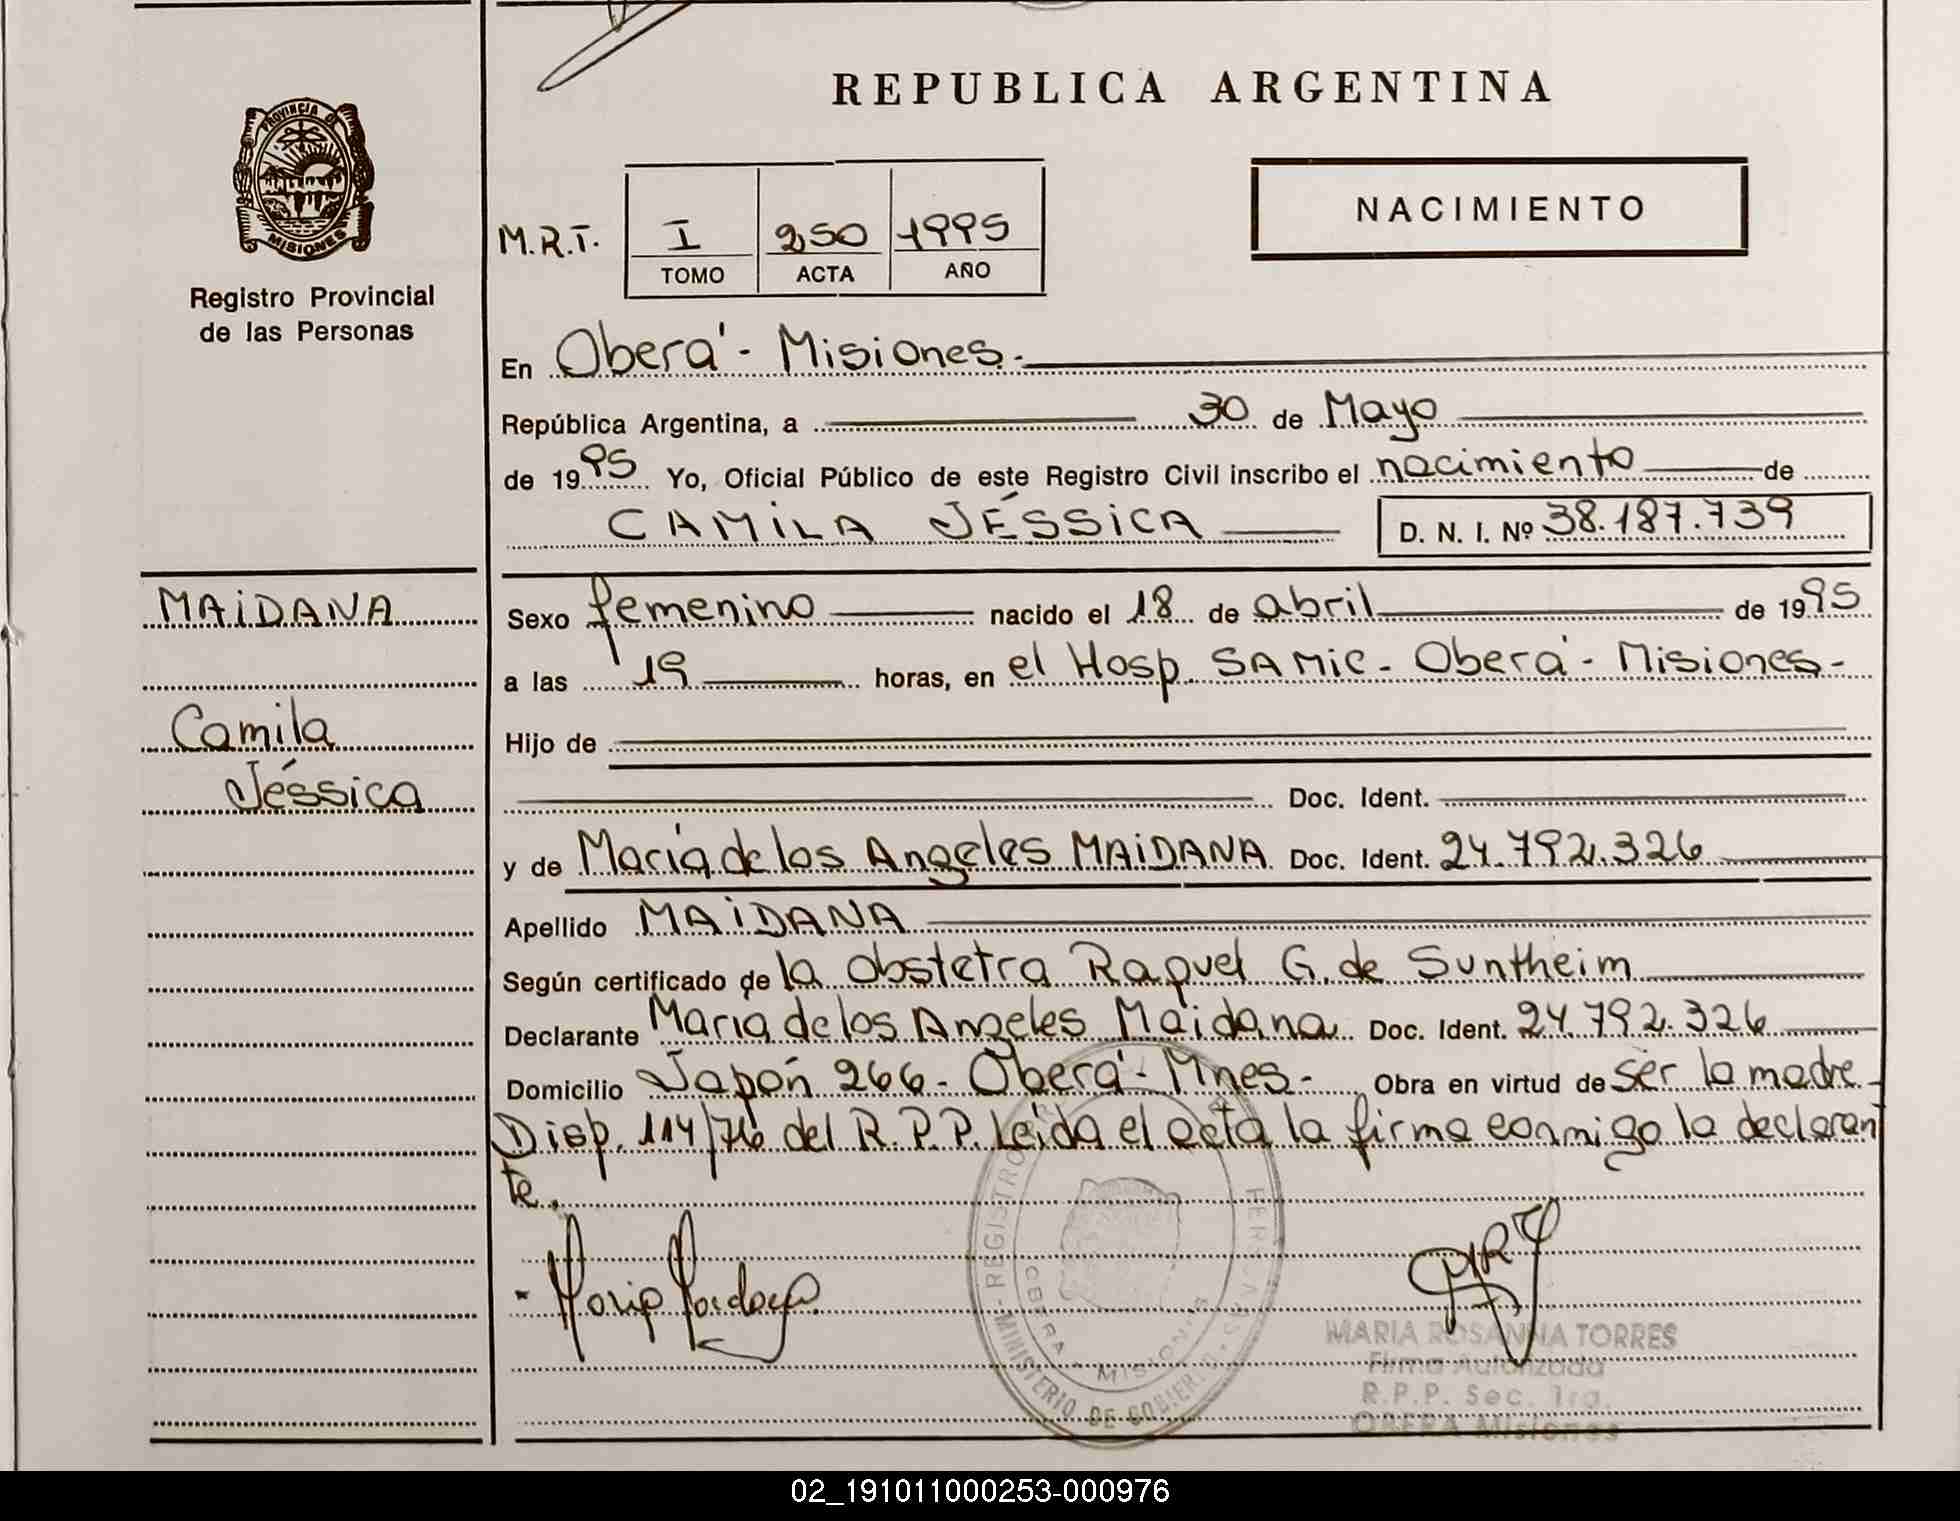 REPUBLICA ARGENTINA
PROVINCIA DE
MISIONES
Registro Provincial
de las Personas
NACIMIENTO
M.R.T. I 250 1995
TOMO ACTA AÑO
En Oberá - Misiones.
República Argentina, a 30 de Mayo
de 1995 Yo, Oficial Público de este Registro Civil inscribo el nacimiento de
CAMILA JÉSSICA D. N. I. Nº 38.187.739
MAIDANA
Camila
Jéssica
Sexo femenino nacido el 18 de abril de 1995
a las 19 horas, en el Hosp. SAMIC - Oberá - Misiones -
Hijo de
Doc. Ident.
y de María de los Angeles MAIDANA Doc. Ident. 24.792.326
Apellido MAIDANA
Según certificado de la obstetra Raquel G. de Suntheim
Declarante María de los Angeles Maidana Doc. Ident. 24.792.326
Domicilio Japón 266 - Oberá - Mnes - Obra en virtud de ser la madre -
Disp. 114/76 del R.P.P. Leída el acta la firma conmigo la declaran
te.
MINISTERIO DE GOBIERNO - REGISTRO
OBERA - MISIONES
MARIA ROSANNA TORRES
Firma Autorizada
R.P.P. Sec. 1ra.
OBERA Misiones
02_191011000253-000976